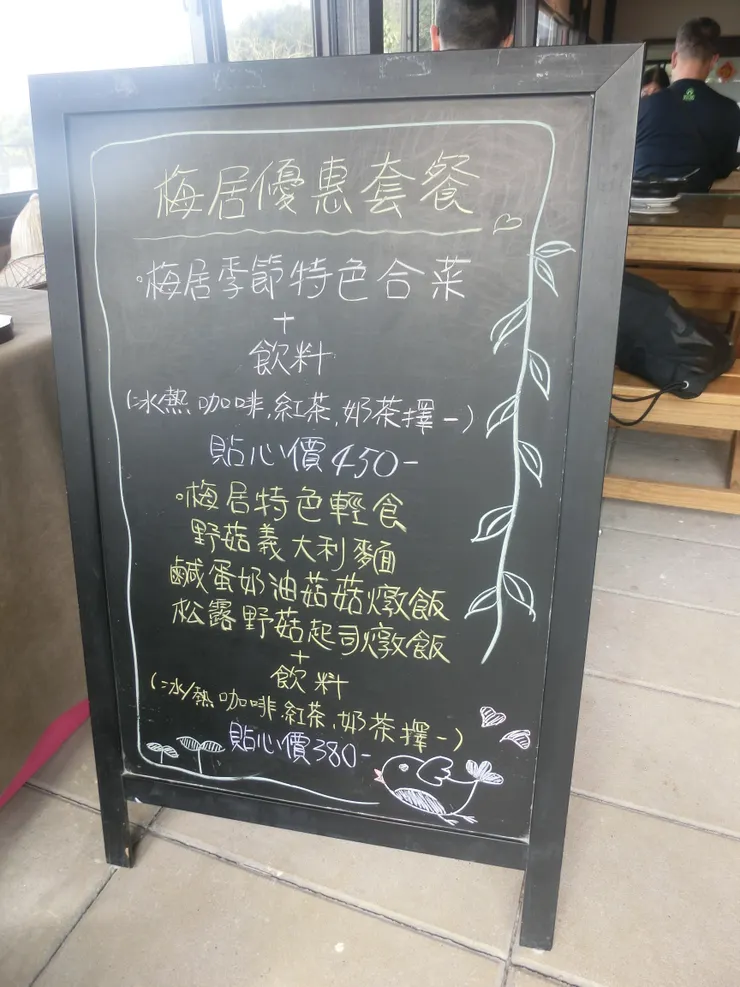 梅居優惠套餐
·梅居季節特色合菜
+
飲料
(冰熱 咖啡,紅茶,奶茶擇一)
貼心價450-
·梅居特色輕食
野菇義大利麵
鹹蛋奶油菇菇燉飯
松露野菇起司燉飯
+
飲料
(冰/熱 咖啡,紅茶,奶茶擇一)
貼心價380-